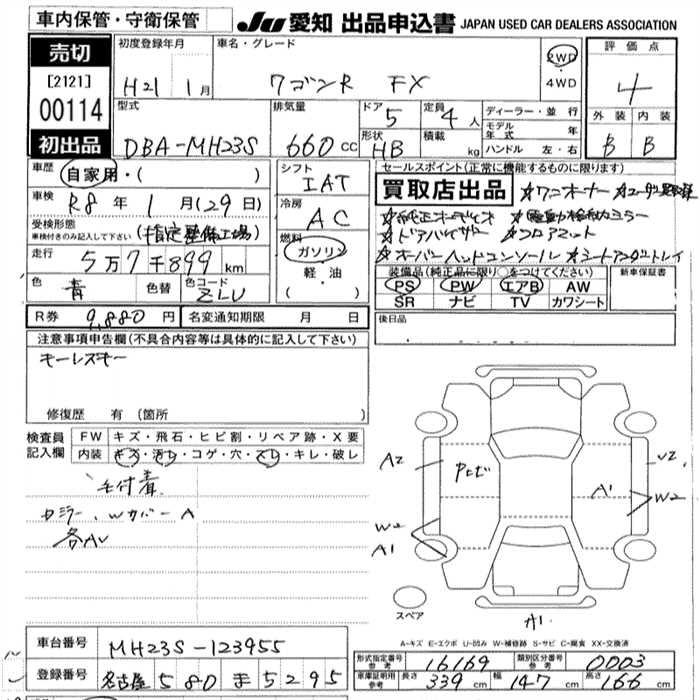 車内保管・守衛保管
JU 愛知 出品申込書 JAPAN USED CAR DEALERS ASSOCIATION
売切
[2121]
00114
初出品
初度登録年月
H21 1月
車名・グレード
ワゴンR FX
2WD
・
4WD
評価点
4
外装 内装
B B
型式
DBA-MH23S
排気量
660 cc
ドア 5
形状 HB
定員 4 人
積載 kg
ディーラー・並行
モデル年式 年
ハンドル 左・右
車歴 自家用・( )
車検 R8年 1月(29日)
受検形態
車検付きのみ記入して下さい (指定整備工場)
走行 5万7千899km
色 青 色替 色コード ZLU
シフト
IAT
冷房
AC
燃料
ガソリン
・
軽・油
( )
セールスポイント(正常に機能するものに限ります)
買取店出品 ☆ワンオーナー ☆ユーザー買取車
☆純正オーディオ ☆電動格納ミラー
☆ドアバイザー ☆フロアマット
☆オーバーヘッドコンソール ☆シートアンダートレイ
装備品(純正品に限り○をつけてください)
PS PW エアB AW
SR ナビ TV カワシート
新車保証書
後日品
R券 9,880 円 名変通知期限 月 日
注意事項申告欄(不具合内容等は具体的に記入して下さい)
キーレスキー
修復歴 有 (箇所 )
検査員
記入欄
FW キズ・飛石・ヒビ割・リペア跡・X要
内装 キズ・汚レ・コゲ・穴・スレ・キレ・破レ
毛付着
カミラー、Wカバー A
各AU
A2
Pヒビ
U2
A1
W2
W2
A1
スペア
A1
A-キズ E-エクボ U-凹み W-補修跡 S-サビ C-腐食 XX-交換済
車台番号 MH23S-123955
登録番号 名古屋 580 ま 5295
形式指定番号
参考 16169
類別区分番号
参考 0003
車庫証明用
参考 長さ 339 cm 幅 147 cm 高さ 166 cm